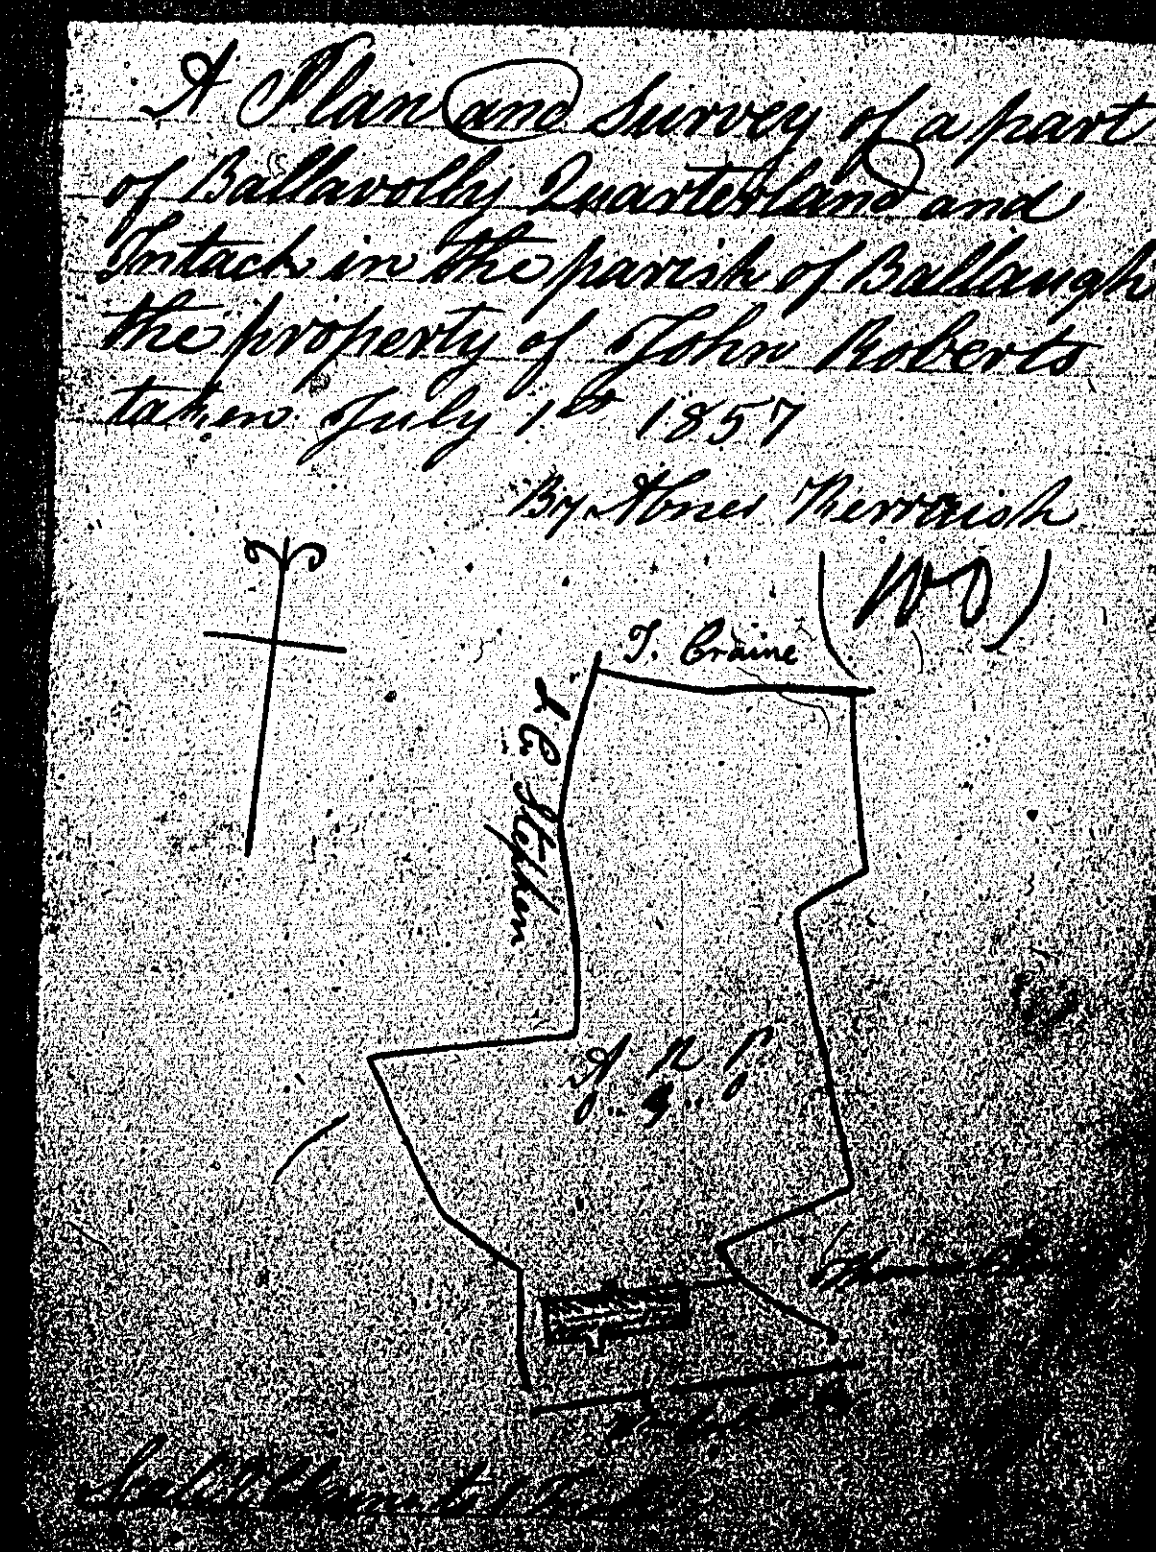 A Plan and Survey of a part
of Ballavolly Quarterland and
Intack in the parish of Ballaugh
the property of John Roberts
taken July 1st 1857
By Abner Kerruish
T. Craine
J C Stephen
A R P
0 .. 4 .. 0
Thomas
Scale 2 Chains to 1 Inch